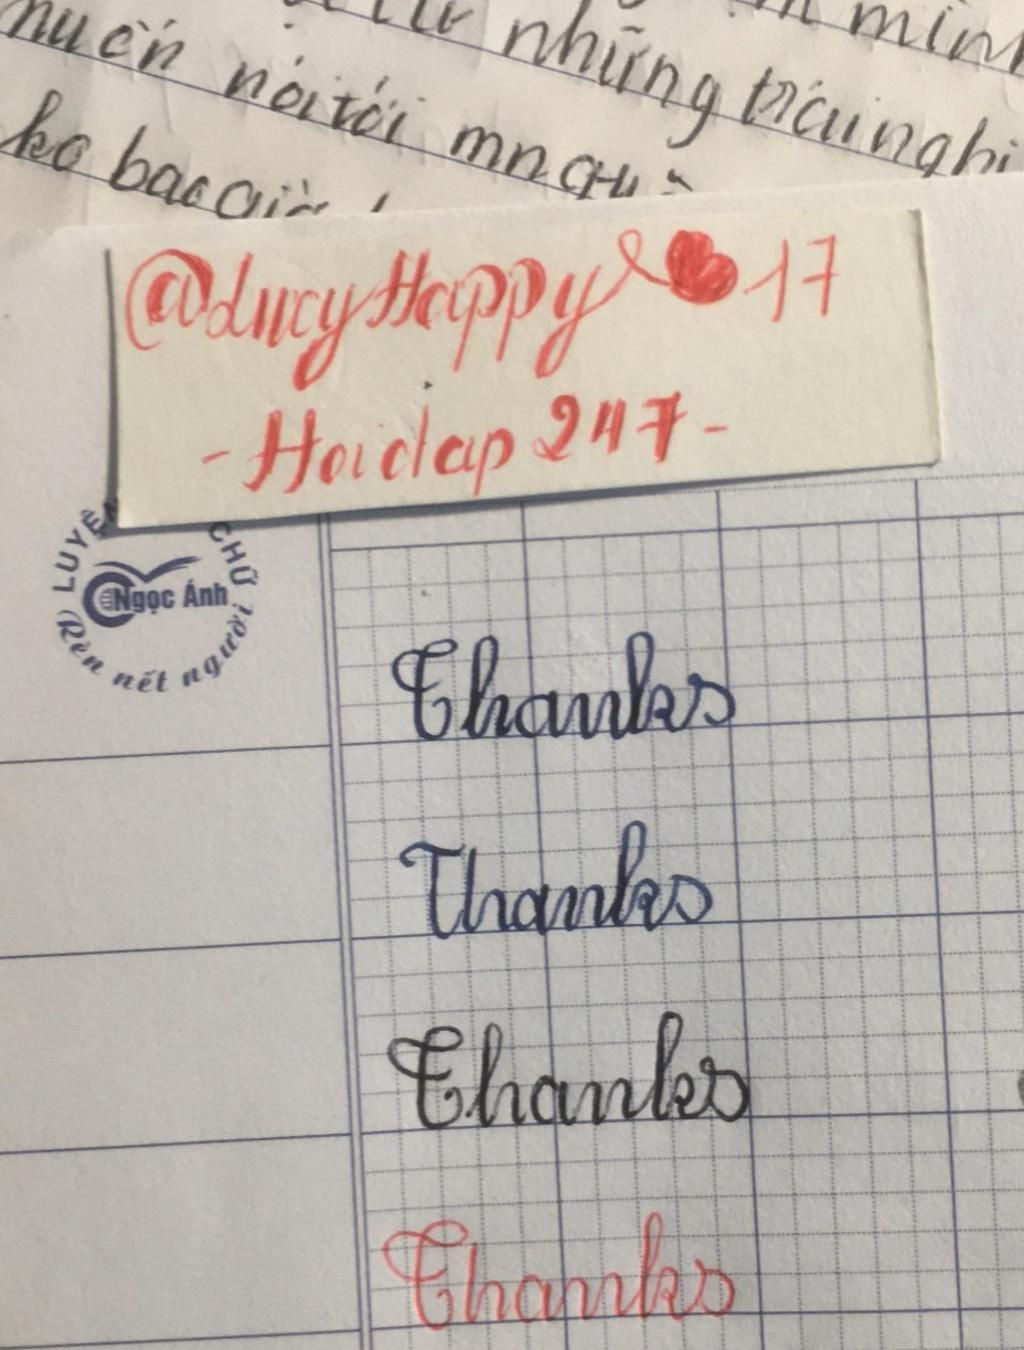 muốn nói tới mn
những
ko bao giờ
@LucyHappy 17
- Hoidap 247 -
LUYỆN CHỮ
Ngọc Ánh
Rèn nết người
Thanks
Thanks
Thanks
Thanks